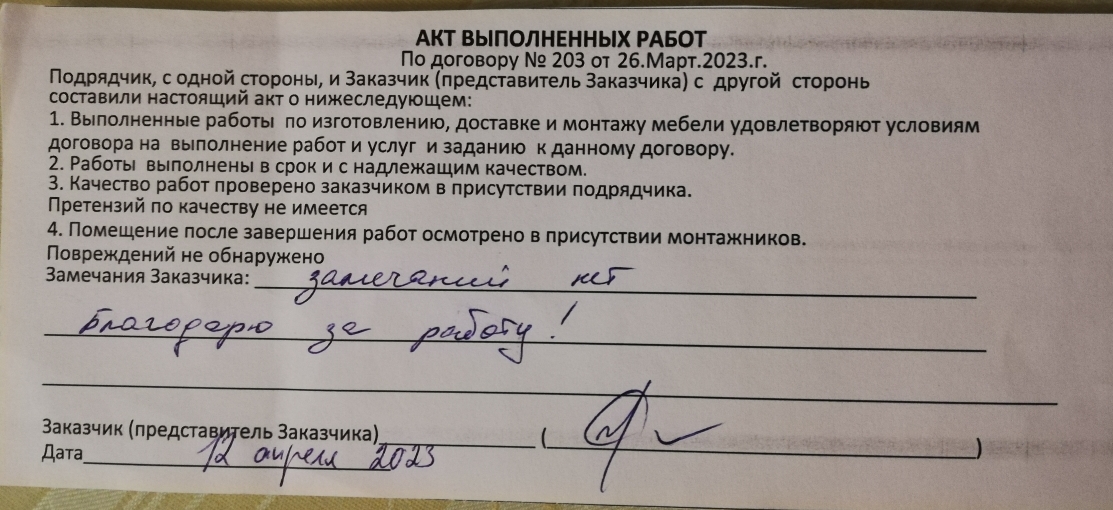 АКТ ВЫПОЛНЕННЫХ РАБОТ
По договору № 203 от 26.Март.2023.г.
Подрядчик, с одной стороны, и Заказчик (представитель Заказчика) с другой сторонь
составили настоящий акт о нижеследующем:
1. Выполненные работы по изготовлению, доставке и монтажу мебели удовлетворяют условиям
договора на выполнение работ и услуг и заданию к данному договору.
2. Работы выполнены в срок и с надлежащим качеством.
3. Качество работ проверено заказчиком в присутствии подрядчика.
Претензий по качеству не имеется
4. Помещение после завершения работ осмотрено в присутствии монтажников.
Повреждений не обнаружено
Замечания Заказчика: замечаний нет
Благодарю за работу!
Заказчик (представитель Заказчика) ( )
Дата 12 апреля 2023